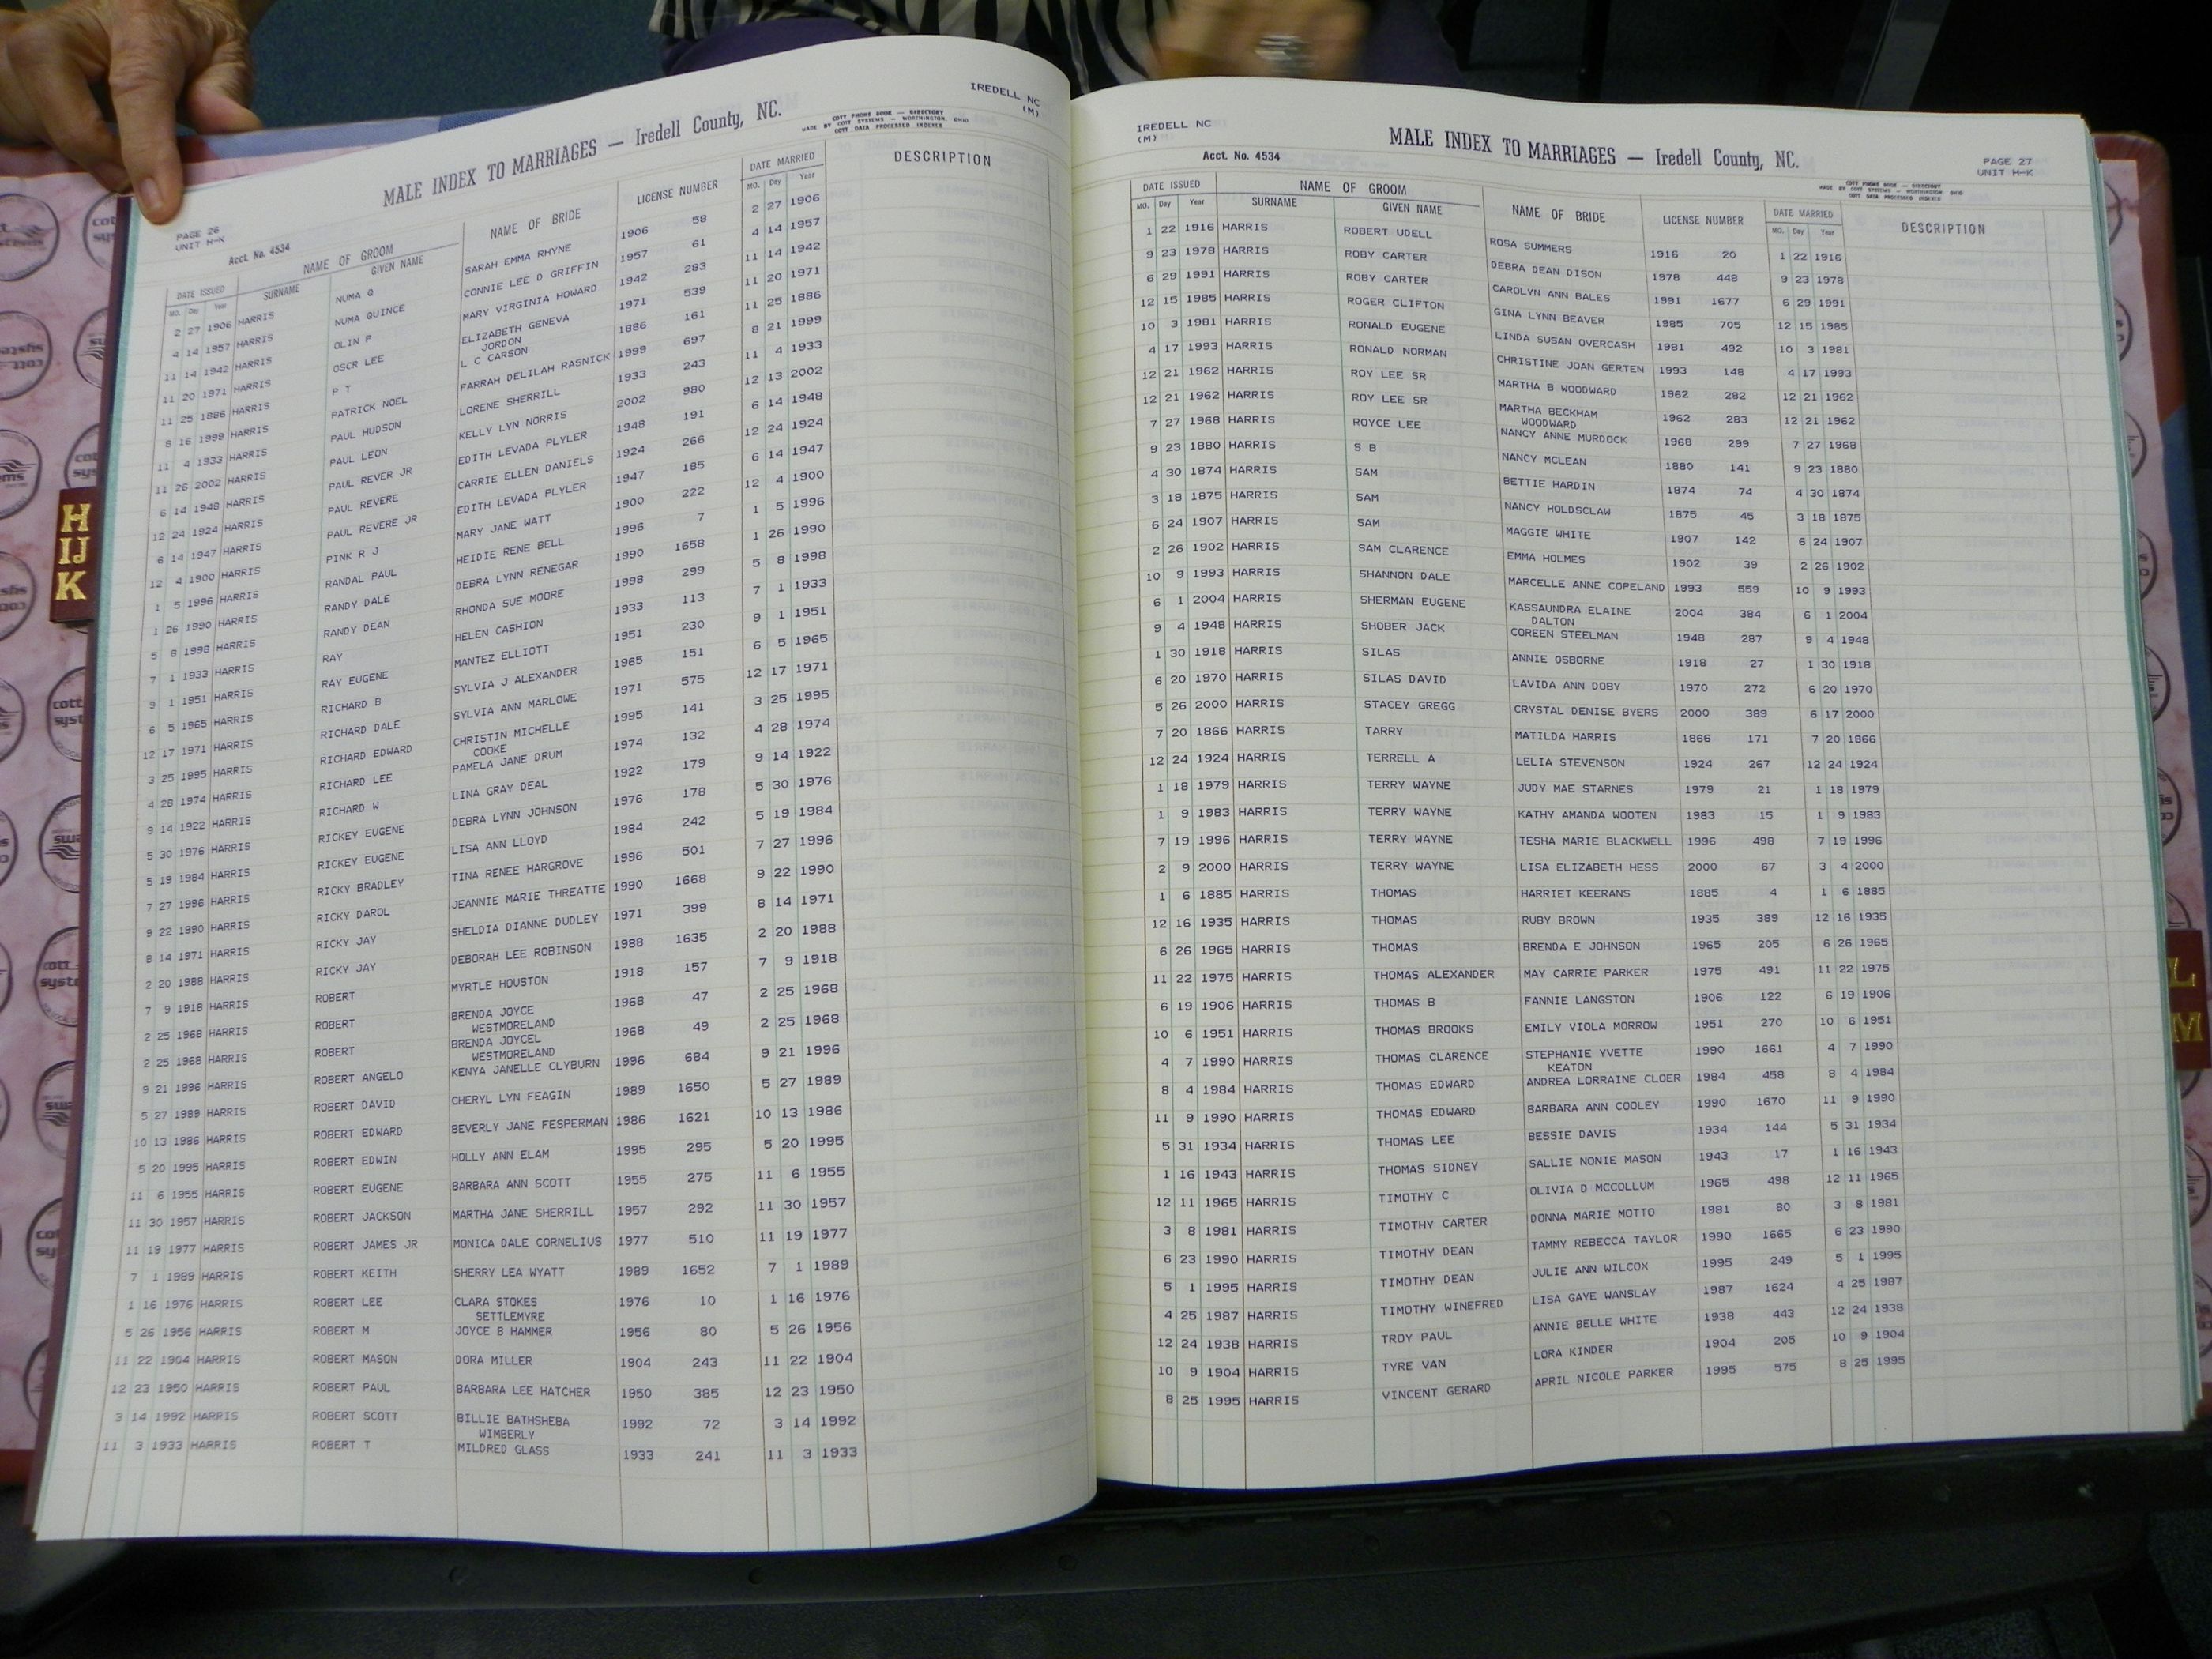 PAGE 26
UNIT H-K
Acct. No. 4534
MALE INDEX TO MARRIAGES — Iredell County, NC.
COTT PHONE BOOK — DIRECTORY
MADE BY COTT SYSTEMS — WORTHINGTON, OHIO
COTT DATA PROCESSED INDEXES
IREDELL NC
(M)
DATE ISSUED NAME OF GROOM NAME OF BRIDE LICENSE NUMBER DATE MARRIED DESCRIPTION
MO. Day Year SURNAME GIVEN NAME MO. Day Year
2 27 1906 HARRIS NUMA Q SARAH EMMA RHYNE 1906 58 2 27 1906
4 14 1957 HARRIS NUMA QUINCE CONNIE LEE D GRIFFIN 1957 61 4 14 1957
11 14 1942 HARRIS OLIN P MARY VIRGINIA HOWARD 1942 283 11 14 1942
11 20 1971 HARRIS OSCR LEE ELIZABETH GENEVA 1971 539 11 20 1971
JORDON
11 25 1886 HARRIS P T L C CARSON 1886 161 11 25 1886
8 16 1999 HARRIS PATRICK NOEL FARRAH DELILAH RASNICK 1999 697 8 21 1999
11 4 1933 HARRIS PAUL HUDSON LORENE SHERRILL 1933 243 11 4 1933
11 26 2002 HARRIS PAUL LEON KELLY LYN NORRIS 2002 980 12 13 2002
6 14 1948 HARRIS PAUL REVER JR EDITH LEVADA PLYLER 1948 191 6 14 1948
12 24 1924 HARRIS PAUL REVERE CARRIE ELLEN DANIELS 1924 266 12 24 1924
6 14 1947 HARRIS PAUL REVERE JR EDITH LEVADA PLYLER 1947 185 6 14 1947
12 4 1900 HARRIS PINK R J MARY JANE WATT 1900 222 12 4 1900
1 5 1996 HARRIS RANDAL PAUL HEIDIE RENE BELL 1996 7 1 5 1996
1 26 1990 HARRIS RANDY DALE DEBRA LYNN RENEGAR 1990 1658 1 26 1990
5 8 1998 HARRIS RANDY DEAN RHONDA SUE MOORE 1998 299 5 8 1998
7 1 1933 HARRIS RAY HELEN CASHION 1933 113 7 1 1933
9 1 1951 HARRIS RAY EUGENE MANTEZ ELLIOTT 1951 230 9 1 1951
6 5 1965 HARRIS RICHARD B SYLVIA J ALEXANDER 1965 151 6 5 1965
12 17 1971 HARRIS RICHARD DALE SYLVIA ANN MARLOWE 1971 575 12 17 1971
3 25 1995 HARRIS RICHARD EDWARD CHRISTIN MICHELLE 1995 141 3 25 1995
COOKE
4 28 1974 HARRIS RICHARD LEE PAMELA JANE DRUM 1974 132 4 28 1974
9 14 1922 HARRIS RICHARD W LINA GRAY DEAL 1922 179 9 14 1922
5 30 1976 HARRIS RICKEY EUGENE DEBRA LYNN JOHNSON 1976 178 5 30 1976
5 19 1984 HARRIS RICKEY EUGENE LISA ANN LLOYD 1984 242 5 19 1984
7 27 1996 HARRIS RICKY BRADLEY TINA RENEE HARGROVE 1996 501 7 27 1996
9 22 1990 HARRIS RICKY DAROL JEANNIE MARIE THREATTE 1990 1668 9 22 1990
8 14 1971 HARRIS RICKY JAY SHELDIA DIANNE DUDLEY 1971 399 8 14 1971
2 20 1988 HARRIS RICKY JAY DEBORAH LEE ROBINSON 1988 1635 2 20 1988
7 9 1918 HARRIS ROBERT MYRTLE HOUSTON 1918 157 7 9 1918
2 25 1968 HARRIS ROBERT BRENDA JOYCE 1968 47 2 25 1968
WESTMORELAND
2 25 1968 HARRIS ROBERT BRENDA JOYCEL 1968 49 2 25 1968
WESTMORELAND
9 21 1996 HARRIS ROBERT ANGELO KENYA JANELLE CLYBURN 1996 684 9 21 1996
5 27 1989 HARRIS ROBERT DAVID CHERYL LYN FEAGIN 1989 1650 5 27 1989
10 13 1986 HARRIS ROBERT EDWARD BEVERLY JANE FESPERMAN 1986 1621 10 13 1986
5 20 1995 HARRIS ROBERT EDWIN HOLLY ANN ELAM 1995 295 5 20 1995
11 6 1955 HARRIS ROBERT EUGENE BARBARA ANN SCOTT 1955 275 11 6 1955
11 30 1957 HARRIS ROBERT JACKSON MARTHA JANE SHERRILL 1957 292 11 30 1957
11 19 1977 HARRIS ROBERT JAMES JR MONICA DALE CORNELIUS 1977 510 11 19 1977
7 1 1989 HARRIS ROBERT KEITH SHERRY LEA WYATT 1989 1652 7 1 1989
1 16 1976 HARRIS ROBERT LEE CLARA STOKES 1976 10 1 16 1976
SETTLEMYRE
5 26 1956 HARRIS ROBERT M JOYCE B HAMMER 1956 80 5 26 1956
11 22 1904 HARRIS ROBERT MASON DORA MILLER 1904 243 11 22 1904
12 23 1950 HARRIS ROBERT PAUL BARBARA LEE HATCHER 1950 385 12 23 1950
3 14 1992 HARRIS ROBERT SCOTT BILLIE BATHSHEBA 1992 72 3 14 1992
WIMBERLY
11 3 1933 HARRIS ROBERT T MILDRED GLASS 1933 241 11 3 1933
IREDELL NC
(M)
Acct. No. 4534
MALE INDEX TO MARRIAGES — Iredell County, NC.
PAGE 27
UNIT H-K
COTT PHONE BOOK — DIRECTORY
MADE BY COTT SYSTEMS — WORTHINGTON OHIO
COTT DATA PROCESSED INDEXES
DATE ISSUED NAME OF GROOM NAME OF BRIDE LICENSE NUMBER DATE MARRIED DESCRIPTION
MO. Day Year SURNAME GIVEN NAME MO. Day Year
1 22 1916 HARRIS ROBERT UDELL ROSA SUMMERS 1916 20 1 22 1916
9 23 1978 HARRIS ROBY CARTER DEBRA DEAN DISON 1978 448 9 23 1978
6 29 1991 HARRIS ROBY CARTER CAROLYN ANN BALES 1991 1677 6 29 1991
12 15 1985 HARRIS ROGER CLIFTON GINA LYNN BEAVER 1985 705 12 15 1985
10 3 1981 HARRIS RONALD EUGENE LINDA SUSAN OVERCASH 1981 492 10 3 1981
4 17 1993 HARRIS RONALD NORMAN CHRISTINE JOAN GERTEN 1993 148 4 17 1993
12 21 1962 HARRIS ROY LEE SR MARTHA B WOODWARD 1962 282 12 21 1962
12 21 1962 HARRIS ROY LEE SR MARTHA BECKHAM 1962 283 12 21 1962
WOODWARD
7 27 1968 HARRIS ROYCE LEE NANCY ANNE MURDOCK 1968 299 7 27 1968
9 23 1880 HARRIS S B NANCY MCLEAN 1880 141 9 23 1880
4 30 1874 HARRIS SAM BETTIE HARDIN 1874 74 4 30 1874
3 18 1875 HARRIS SAM NANCY HOLDSCLAW 1875 45 3 18 1875
6 24 1907 HARRIS SAM MAGGIE WHITE 1907 142 6 24 1907
2 26 1902 HARRIS SAM CLARENCE EMMA HOLMES 1902 39 2 26 1902
10 9 1993 HARRIS SHANNON DALE MARCELLE ANNE COPELAND 1993 559 10 9 1993
6 1 2004 HARRIS SHERMAN EUGENE KASSAUNDRA ELAINE 2004 384 6 1 2004
DALTON
9 4 1948 HARRIS SHOBER JACK COREEN STEELMAN 1948 287 9 4 1948
1 30 1918 HARRIS SILAS ANNIE OSBORNE 1918 27 1 30 1918
6 20 1970 HARRIS SILAS DAVID LAVIDA ANN DOBY 1970 272 6 20 1970
5 26 2000 HARRIS STACEY GREGG CRYSTAL DENISE BYERS 2000 389 6 17 2000
7 20 1866 HARRIS TARRY MATILDA HARRIS 1866 171 7 20 1866
12 24 1924 HARRIS TERRELL A LELIA STEVENSON 1924 267 12 24 1924
1 18 1979 HARRIS TERRY WAYNE JUDY MAE STARNES 1979 21 1 18 1979
1 9 1983 HARRIS TERRY WAYNE KATHY AMANDA WOOTEN 1983 15 1 9 1983
7 19 1996 HARRIS TERRY WAYNE TESHA MARIE BLACKWELL 1996 498 7 19 1996
2 9 2000 HARRIS TERRY WAYNE LISA ELIZABETH HESS 2000 67 3 4 2000
1 6 1885 HARRIS THOMAS HARRIET KEERANS 1885 4 1 6 1885
12 16 1935 HARRIS THOMAS RUBY BROWN 1935 389 12 16 1935
6 26 1965 HARRIS THOMAS BRENDA E JOHNSON 1965 205 6 26 1965
11 22 1975 HARRIS THOMAS ALEXANDER MAY CARRIE PARKER 1975 491 11 22 1975
6 19 1906 HARRIS THOMAS B FANNIE LANGSTON 1906 122 6 19 1906
10 6 1951 HARRIS THOMAS BROOKS EMILY VIOLA MORROW 1951 270 10 6 1951
4 7 1990 HARRIS THOMAS CLARENCE STEPHANIE YVETTE 1990 1661 4 7 1990
KEATON
8 4 1984 HARRIS THOMAS EDWARD ANDREA LORRAINE CLOER 1984 458 8 4 1984
11 9 1990 HARRIS THOMAS EDWARD BARBARA ANN COOLEY 1990 1670 11 9 1990
5 31 1934 HARRIS THOMAS LEE BESSIE DAVIS 1934 144 5 31 1934
1 16 1943 HARRIS THOMAS SIDNEY SALLIE NONIE MASON 1943 17 1 16 1943
12 11 1965 HARRIS TIMOTHY C OLIVIA D MCCOLLUM 1965 498 12 11 1965
3 8 1981 HARRIS TIMOTHY CARTER DONNA MARIE MOTTO 1981 80 3 8 1981
6 23 1990 HARRIS TIMOTHY DEAN TAMMY REBECCA TAYLOR 1990 1665 6 23 1990
5 1 1995 HARRIS TIMOTHY DEAN JULIE ANN WILCOX 1995 249 5 1 1995
4 25 1987 HARRIS TIMOTHY WINEFRED LISA GAYE WANSLAY 1987 1624 4 25 1987
12 24 1938 HARRIS TROY PAUL ANNIE BELLE WHITE 1938 443 12 24 1938
10 9 1904 HARRIS TYRE VAN LORA KINDER 1904 205 10 9 1904
8 25 1995 HARRIS VINCENT GERARD APRIL NICOLE PARKER 1995 575 8 25 1995
H
IJ
K
L
M